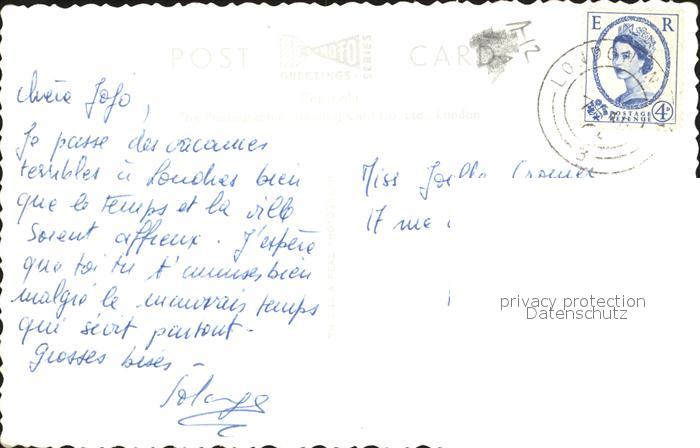 POST CARD
PHOTO
GREETINGS
SERIES
The Photographic Greeting Card Co., Ltd., London
THIS IS A REAL PHOTOGRAPH
E R
POSTAGE
REVENUE
4D
LONDON
chère Jojo,
Je passe des vacances
terribles à Londres bien
que le temps et la ville
soient affreux. J'espère
que toi tu t'amuses bien
malgré le mauvais temps
qui sévit partout.
Grosses bises -
Solange
Miss Joëlle
17 rue
privacy protection
Datenschutz